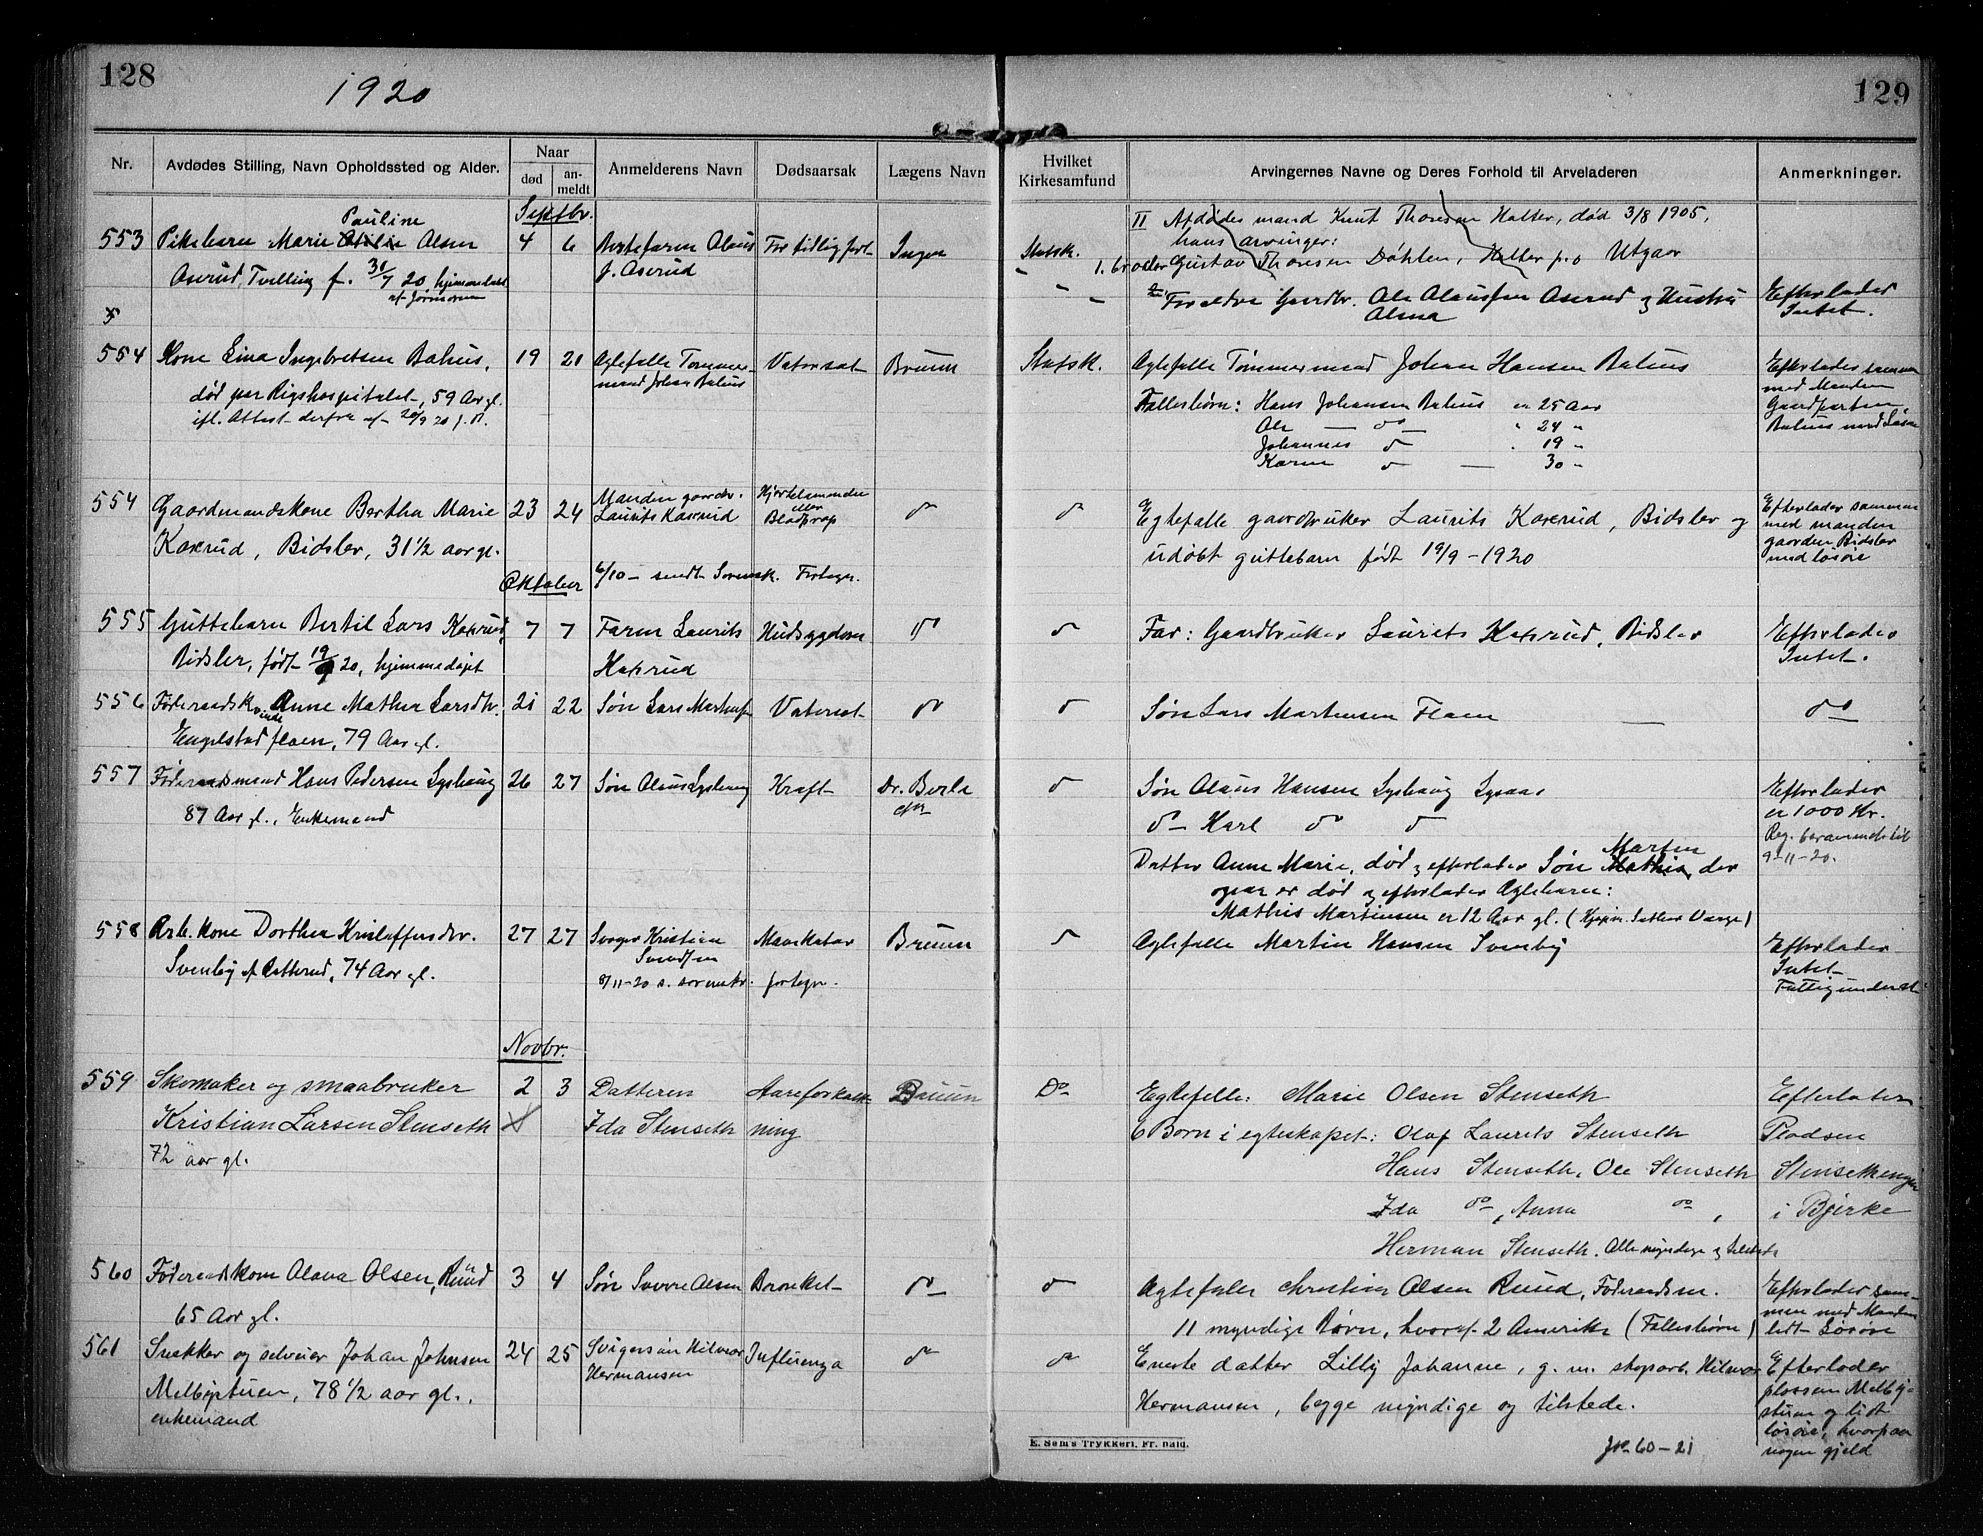 128
1920
129
Nr.
Avdødes Stilling, Navn Opholdssted og Alder.
Naar
død
an-
meldt
Anmelderens Navn
Dødsaarsak
Lægens Navn
Hvilket
Kirkesamfund
Arvingernes Navne og Deres Forhold til Arveladeren
Anmerkninger.
Septbr.
II Afdødes mand Knut Thoresen Halter, død 3/8 1905,
hans arvinger:
1. broder Gustav Thoresen Døhlen, Halter p.o Utgaar
Pauline
553 Pikebarn Marie Olsen 4 6 Bestefaren Olaus For tidlig født Ingen Statsk.
Aserud, Tvilling f. 31/7 20, hjemmedøbt
af Jormoren
f. Aserud
Forældre Gaardbr. Ole Olaussen Aserud og Hustru
Olma
Efterlader
Intet.
554 Kone Lina Ingebretsen Balius, 19 21 Ægtefælle Tømmer- Vatersot Bruun Statsk. Ægtefælle Tømmermand Johan Hansen Balius
mand Johan Balius
død paa Rigshospitalet, 59 Aar gl.
ifl. Attest derfra af 20/9 20 f. P.
Fællesbørn: Hans Johansen Balius er 25 Aar
Ole — do — " 24 "
Johannes do " 19 "
Karen do — 30 "
Efterlader sammen
med Manden
Gaardparten
Balius med Løsøre
554 Gaardmandskone Bertha Marie 23 24 Manden gaardbr. Hjertelammelse do do
Laurits Kaxrud
eller
Blodprop
Kaxrud, Bidsler, 31 1/2 aar gl.
Egtefælle gaardbruker Laurits Kaxrud, Bidsler og
udøbt guttebarn født 19/9 - 1920
Efterlader sammen
med manden
gaarden Bidsler
med løsøre
Oktober
6/10 - sendt Sorensk. Fortegn.
555 Guttebarn Bertil Lars Kaxrud, 7 7 Faren Laurits Hudsygdom do do Far: Gaardbruker Laurits Kaxrud, Bidsler Efterlader
Bidsler, født 19/9 20, hjemmedøpt
Kaxrud
Intet.
556 Føderaadskvinde Anne Mathea Larsdtr. 21 22 Søn Lars Martinsen Vatersot do do Søn Lars Martinsen Flaen — do
Engelstad flaen, 79 Aar gl.
557 Føderaadsmand Hans Pedersen Lyshaug 26 27 Søn Olaus Lyshaug Kræft Dr. Berle do Søn Olaus Hansen Lyshaug Lysaas
87 Aar gl., Enkemand
do — Karl do do
Datter Anne Marie, død og efterlader Søn Martin der
ogsaa er død og efterlader Ægtebarn:
Mathis Martinsen er 12 Aar gl.
Efterlader
ca 1000 Kr.
Reg. berammet til
9-11-20.
558 Arb. kone Dorthea Kristoffersdtr. 27 27 Svoger Kristian Mavekatar Bruun do Ægtefælle Martin Hansen Svenby
Svendsen
Svenby af Ratterud, 74 Aar gl.
8/11-20 s. sorenskr. fortegn.
Efterlader
Intet
Fattigunderst.
Novbr.
559 Skomaker og smaabruker 2 3 Datteren Aareforkalk- Bruun Do Egtefelle: Marie Olsen Stenseth
Kristian Larsen Stenseth Ida Stenseth ning
72 aar gl.
6 Børn i egteskapet: Olaf Laurits Stenseth
Hans Stenseth, Ole Stenseth
Ida do, Anna do,
Herman Stenseth. Alle myndige og tilstede
Efterlater
Pladsen
Stensethengen
i Bjerke
560 Føderaadskone Olava Olsen, Ruud 3 4 Søn Sverre Olsen Bronkit do do Ægtefælle Christian Olsen Ruud, Føderaadsm.
65 Aar gl.
11 myndige Børn, hvoraf 2 Amerika (Fællesbørn)
Efterlader sam-
men med Manden
lidt Løsøre
561 Snekker og selveier Johan Johnsen 24 25 Svigersøn Hilmar Influenza do do Eneste datter Lilly Johanne, g. m. skoparb. Hilmar
Hermansen
Melbystuen, 78 1/2 aar gl.,
enkemand
Hermansen, begge myndige og tilstede.
Efterlader
plassen Melby-
stuen og lidt
løsøre, hvorpaa
nogen gjeld
E. Sem's Trykkeri, Fr. hald.
Jr. 60-21